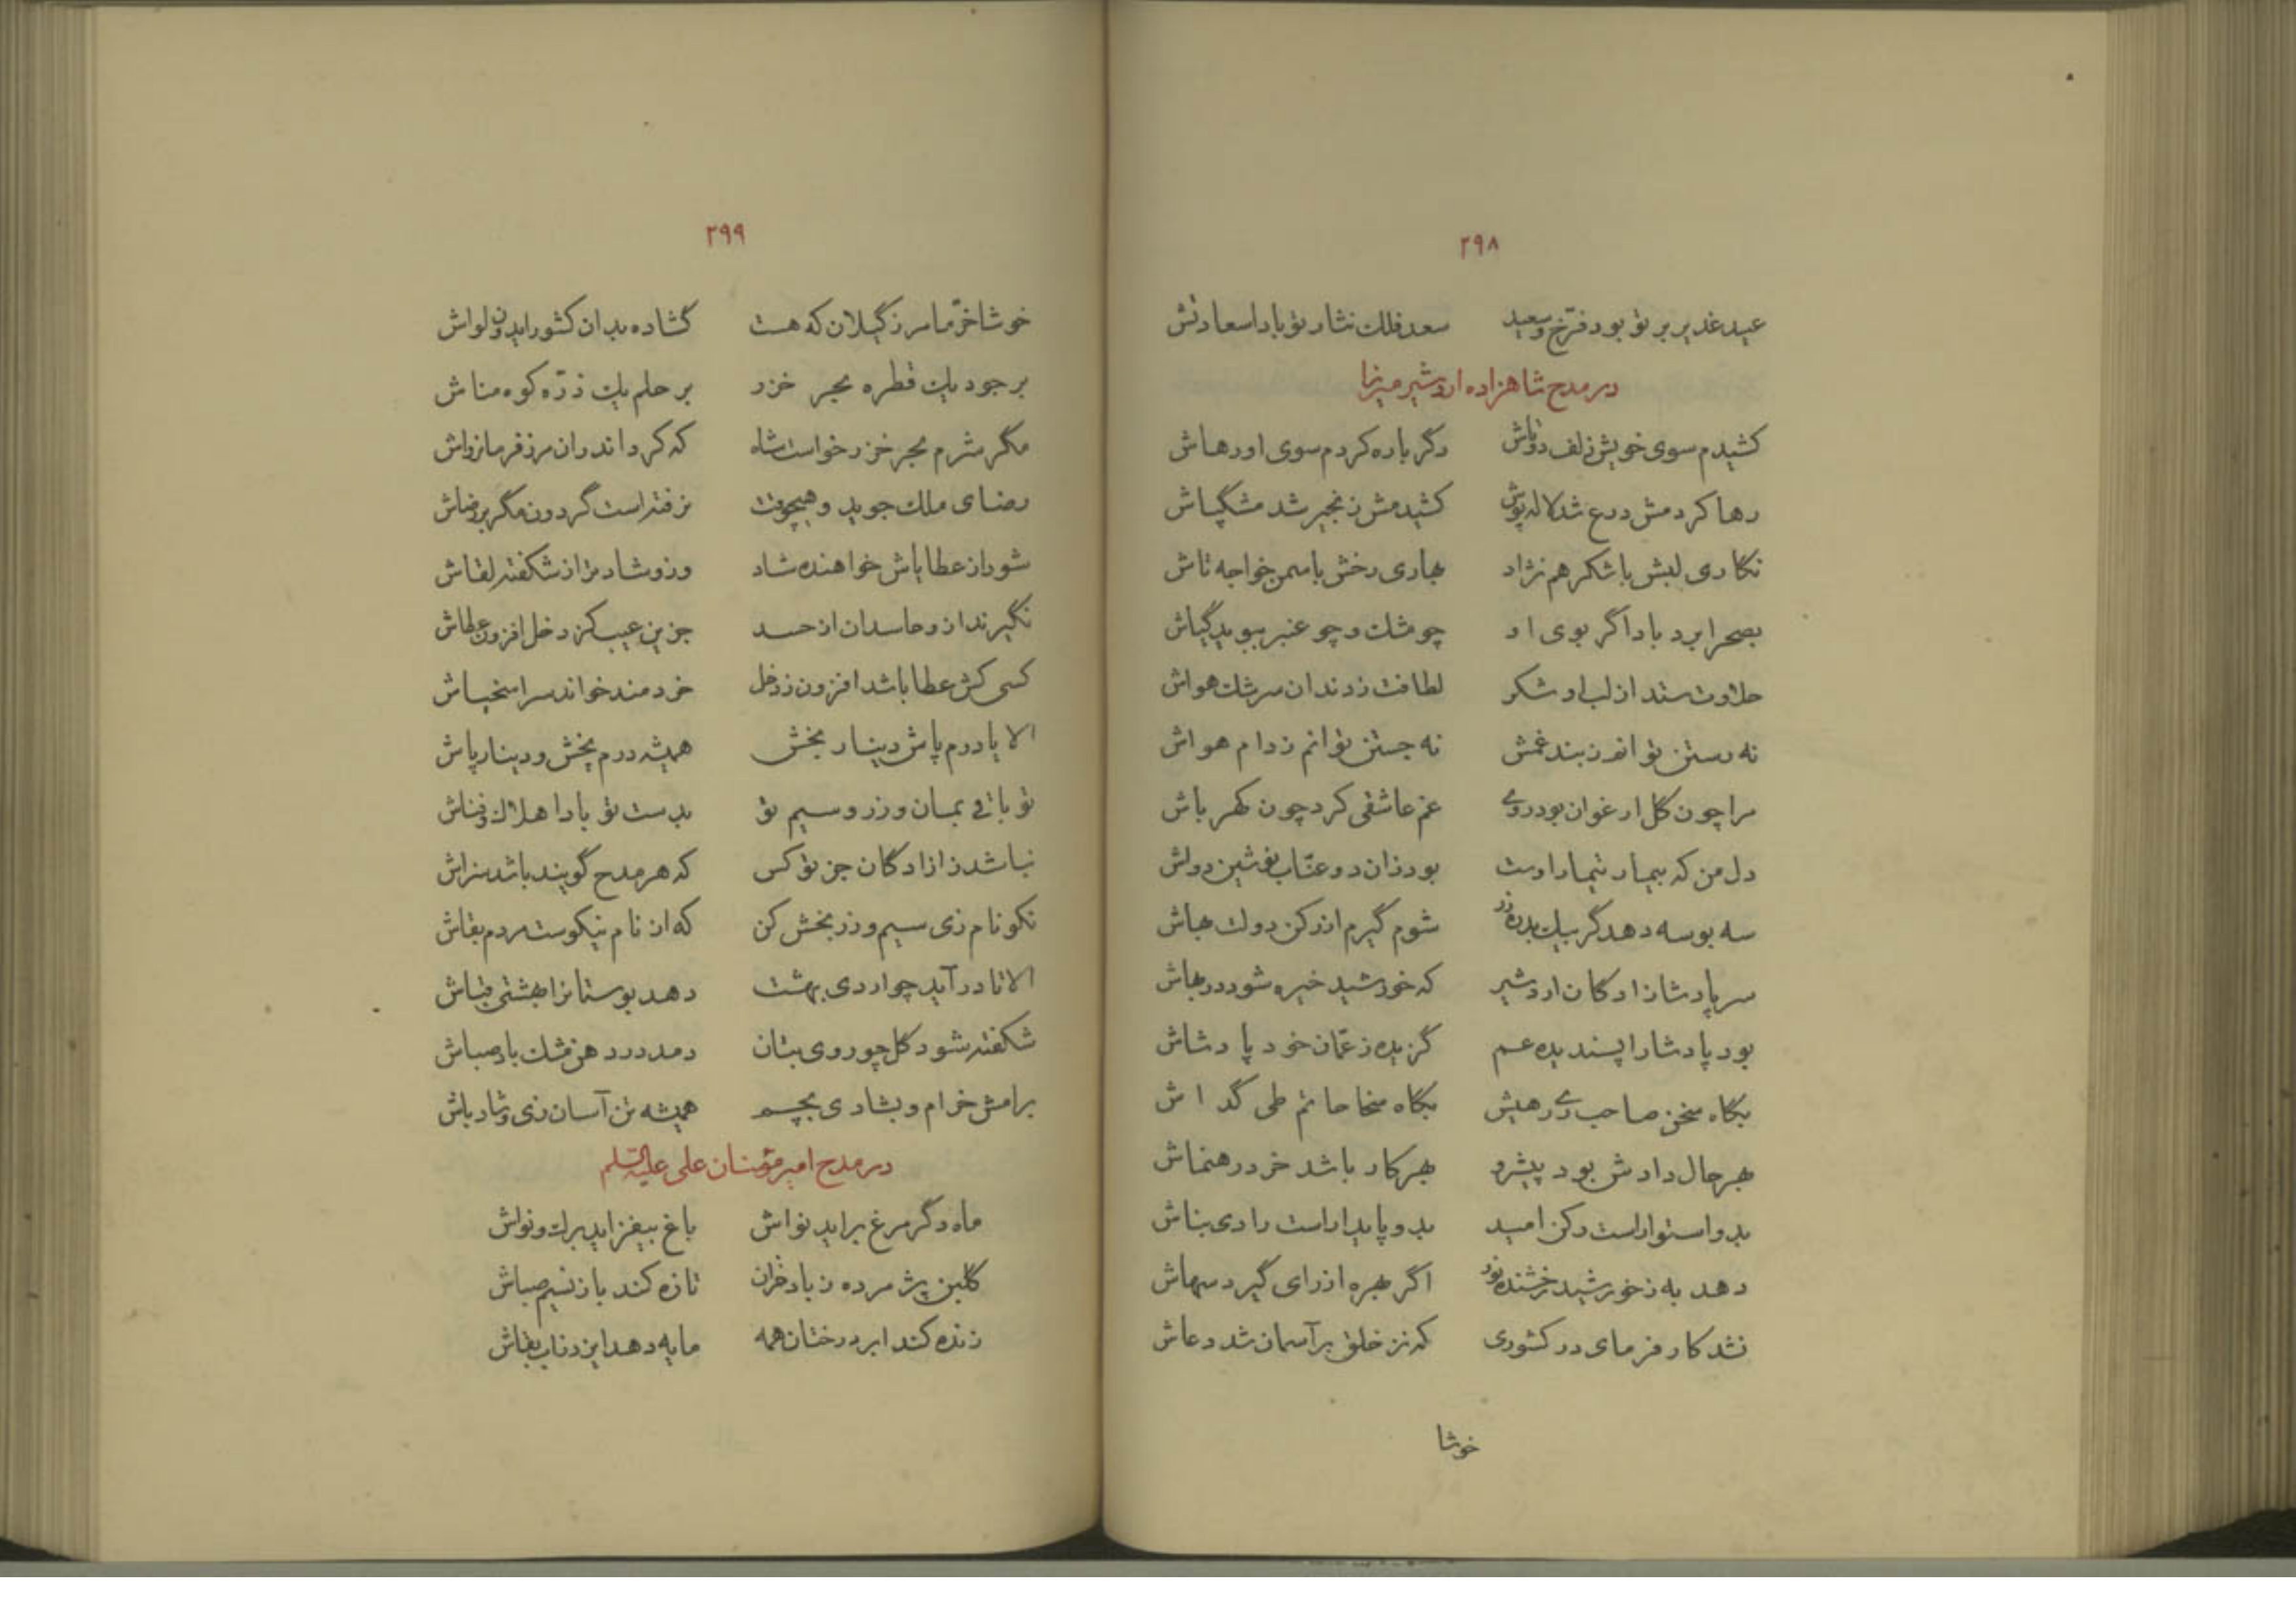 ۲۹۸
عید غدیر بر تو بود فرّخ و سعید سعد فلک نثار تو بادا سعادتش
در مدح شاهزاده اردشیر میرزا
کشیدم سوی خویش زلف دوتاش دگر باره کردم سوی او رهاش
رها کردمش درع شد لاله پوش کشیدمش زنجیر شد مشگساش
نگاری لبش با شکر هم نژاد بهاری رخش با سمن خواجه تاش
بصحرا برد باد اگر بوی او چو مشک و چو عنبر ببوید گیاش
حلاوت ستد از لب او شکر لطافت زدندان سرشک هواش
نه رستن توانم زبند غمش نه جستن توانم زدام هواش
مرا چون گل ارغوان بود روی غم عاشقی کرد چون کهرباش
دل من که بیمار تیمار اوست بود زان دو عنّاب نوشین دواش
سه بوسه دهد گر بیک بدره زر شوم گیرم از رکن دولت بهاش
سر پادشازادگان اردشیر که خورشید خیره شود در بهاش
بود پادشا را پسندیده عم گزیده زعمّان خود پادشاش
بگاه سخن صاحب ری رهیش بگاه سخا حاتم طی گداش
بهر حال دادش بود پیشرو بهر کار باشد خرد رهنماش
بدو استوار است رکن امید بدو پایدار است رادی بناش
دهد به زخورشید رخشنده نور اگر بهره از رای گیرد سهاش
نشد کارفرمای در کشوری که نز خلق بر آسمان شد دعاش
خوشا
۲۹۹
خوشا خرّما مرز گیلان که هست گشاده بدان کشور ایدون لواش
بر جود یک قطره بحر خزر بر حلم یک ذرّه کوه مناش
مگر شرم بحر خزر خواست شاه که کرد اندران مرز فرمانرواش
رضای ملک جوید و هیچوقت نرفته است گردون مگر بر رضاش
شود از عطایاش خواهنده شاد وزو شادتر از شکفته لقاش
نگیرند ازو حاسدان از حسد جز این عیب کز دخل افزون عطاش
کسی کش عطا باشد افزون زدخل خردمند خواند سراسخیاش
الا یا درم پاش دینار بخش همیشه درم بخش و دینار پاش
تو باقی بمان وزر و سیم تو بدست تو بادا هلاک و فناش
نباشد زازادگان جز تو کس که هر مدح گویند باشد سزاش
نکو نام زی سیم و زر بخش کن که از نام نیکوست مردم بقاش
الا تا در آید چو اردی بهشت دهد بوستانرا بهشتی قباش
شکفته شود گل چو روی بتان دمد در دهن مشک باد صباش
برامش خرام و بشادی بچم همیشه تن آسان زی و شاد باش
در مدح امیر مؤمنان علی علیه السلم
ماه دگر مرغ براید نواش باغ بیفزاید برک و نواش
گلبن پژمرده زباد خزان تازه کند باز نسیم صباش
زنده کند ابر درختان همه مایه دهد ایزد تاب بقاش